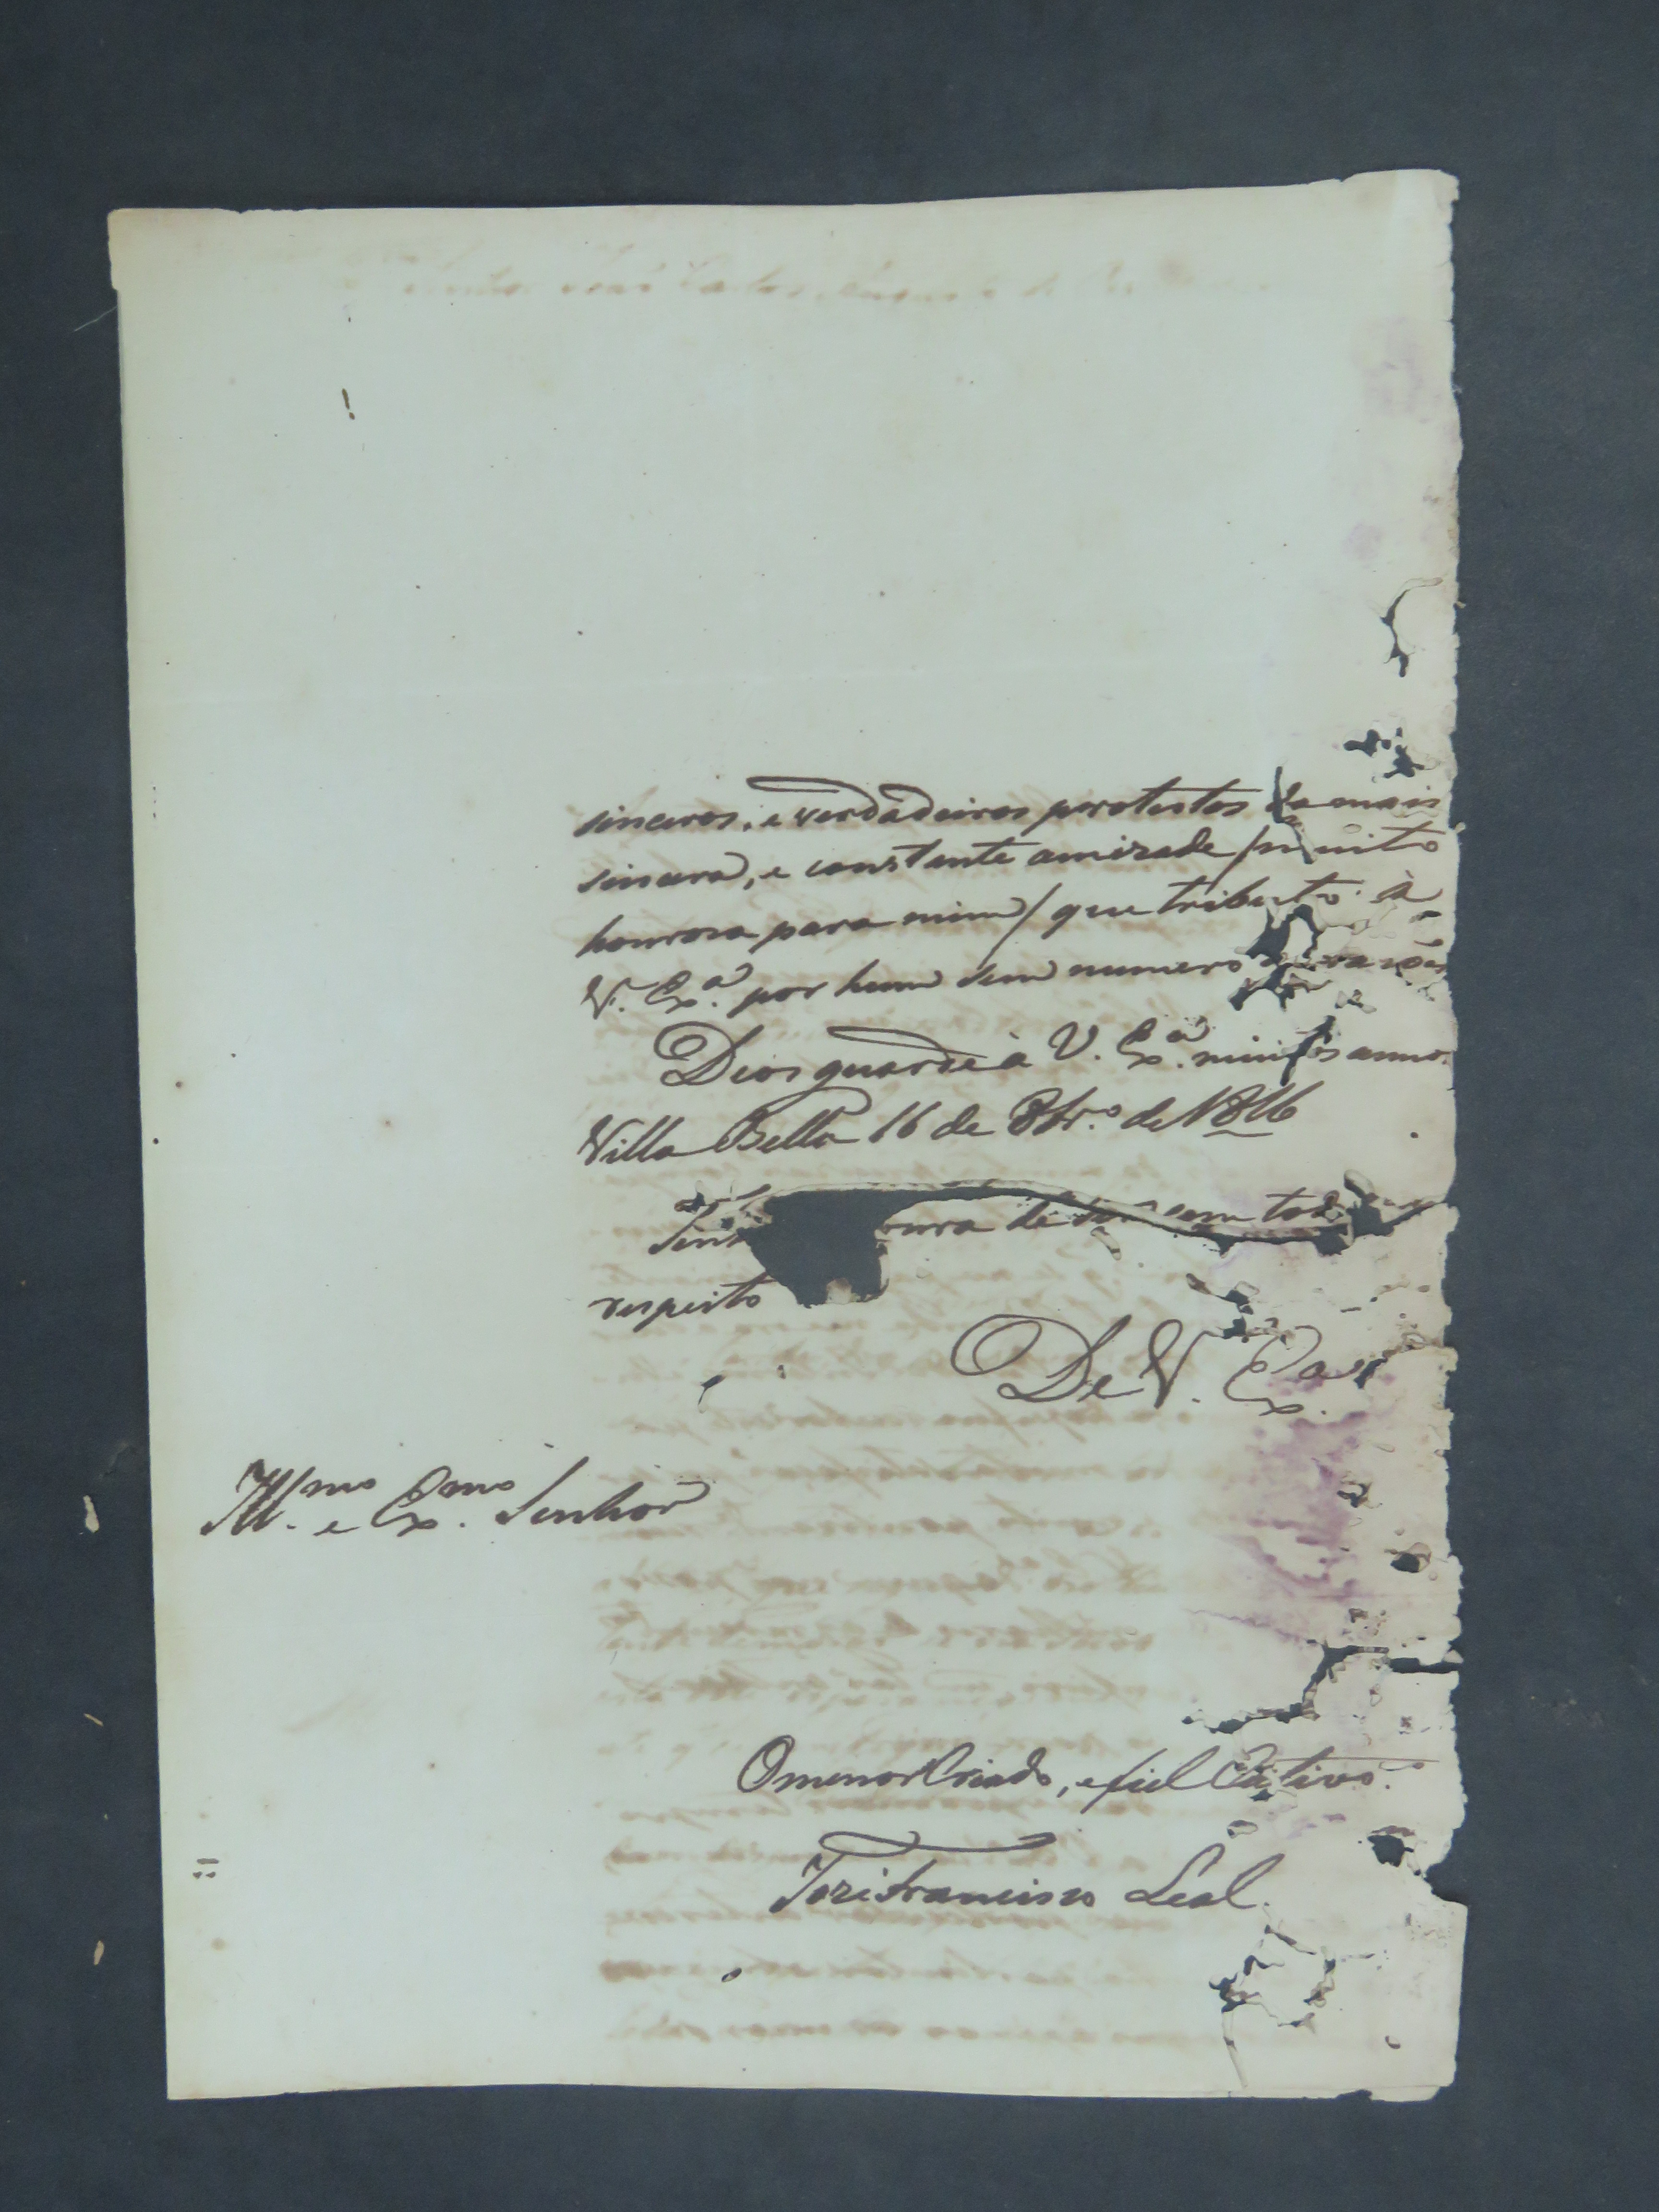 sinceros, e verdadeiros protestos da mais
sincera, e constante amizade / muito
honroza para mim / que tributo à
V. Ex.ª por hum sem numero de razões
Deos guarde à V. Ex.ª muitos annos.
Villa Bella 16 de 8br.º de 1816
de com
respeito
De V. Exª.
Ill.mo e Ex.mo Senhor
O menor Criado, e fiel Cativo.
Joze Francisco Leal.